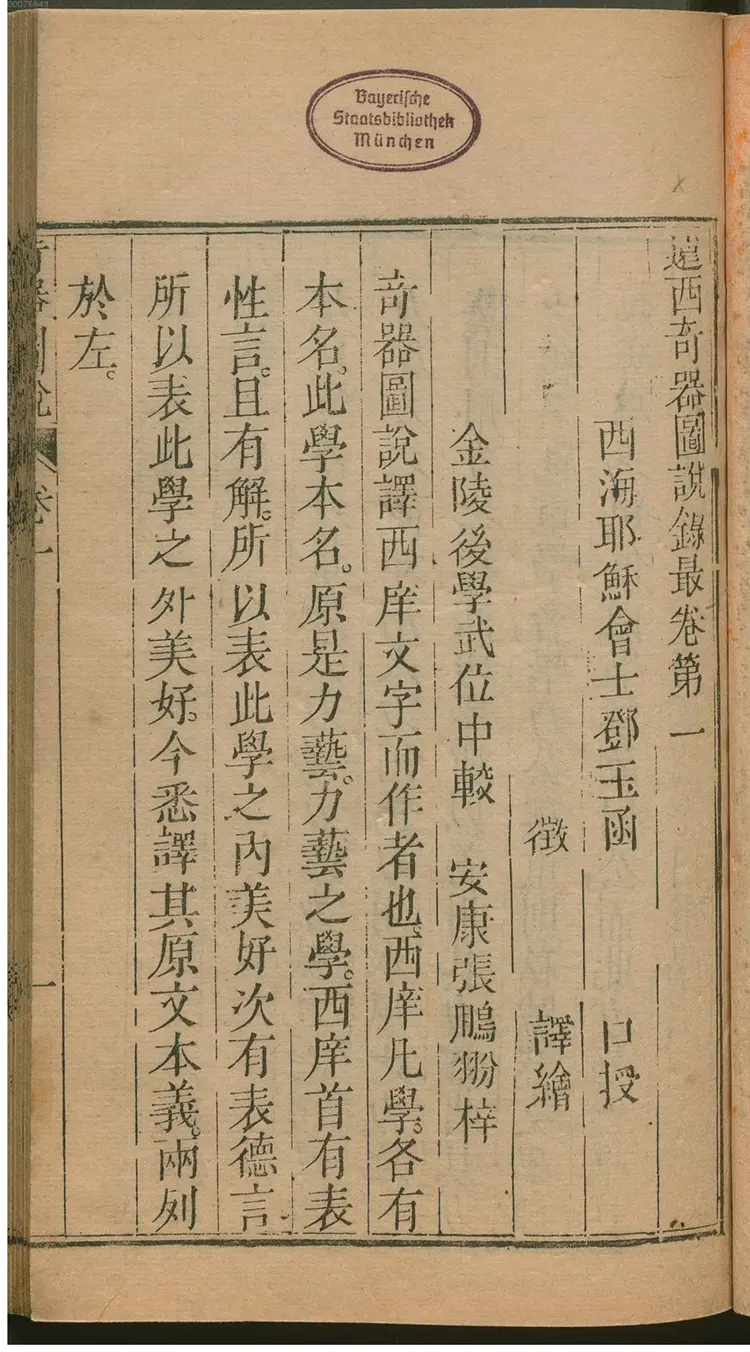 00075843
Bayerische
Staatsbibliothek
München
遠西奇器圖說錄最卷第一
西海耶穌會士鄧玉函 口授
徵 譯繪
金陵後學武位中較 安康張鵬翂梓
奇器圖說譯西庠文字而作者也西庠凡學。各有
本名。此學本名。原是力藝。力藝之學。西庠首有表
性言。且有解。所以表此學之內美好次有表德言
所以表此學之外美好。今悉譯其原文本義。兩列
於左。
奇器圖說 卷一 一